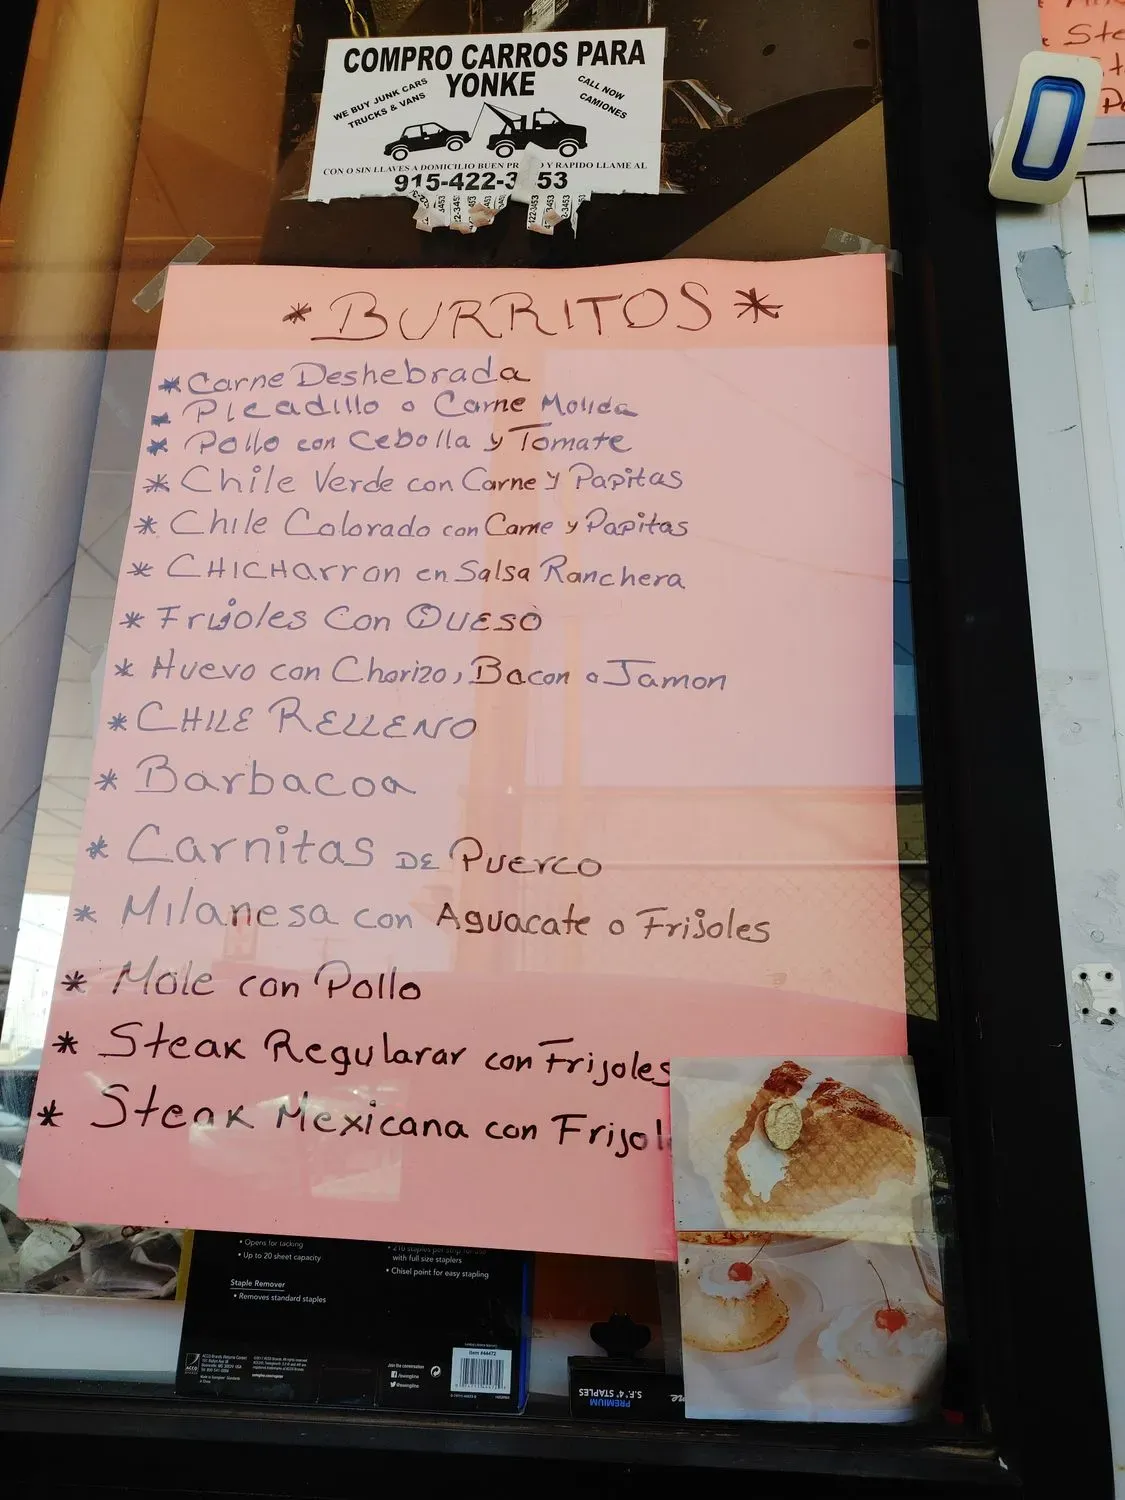 COMPRO CARROS PARA
YONKE
WE BUY JUNK CARS
TRUCKS & VANS
CALL NOW
CAMIONES
CON O SIN LLAVES A DOMICILIO BUEN PR Y RAPIDO LLAME AL
915-422-3 53
* BURRITOS *
* Carne Deshebrada
* Picadillo o Carne Molida
* Pollo con Cebolla y Tomate
* Chile Verde con Carne y Papitas
* Chile Colorado con Carne y Papitas
* CHICHArron en Salsa Ranchera
* Frijoles Con QUESO
* Huevo con Chorizo, Bacon o Jamon
* CHILE RELLENO
* Barbacoa
* Carnitas DE Puerco
* Milanesa con Aguacate o Frijoles
* Mole con Pollo
* Steak Regularar con Frijoles
* Steak Mexicana con Frijol
• Opens for tacking
• Up to 20 sheet capacity
Staple Remover
• Removes standard staples
• 210 staples per strip for use
with full size staplers
• Chisel point for easy stapling
Join the conversation
f/swingline
@swingline
ACCO
Item #44472
S.F.® 4® STAPLES
PREMIUM